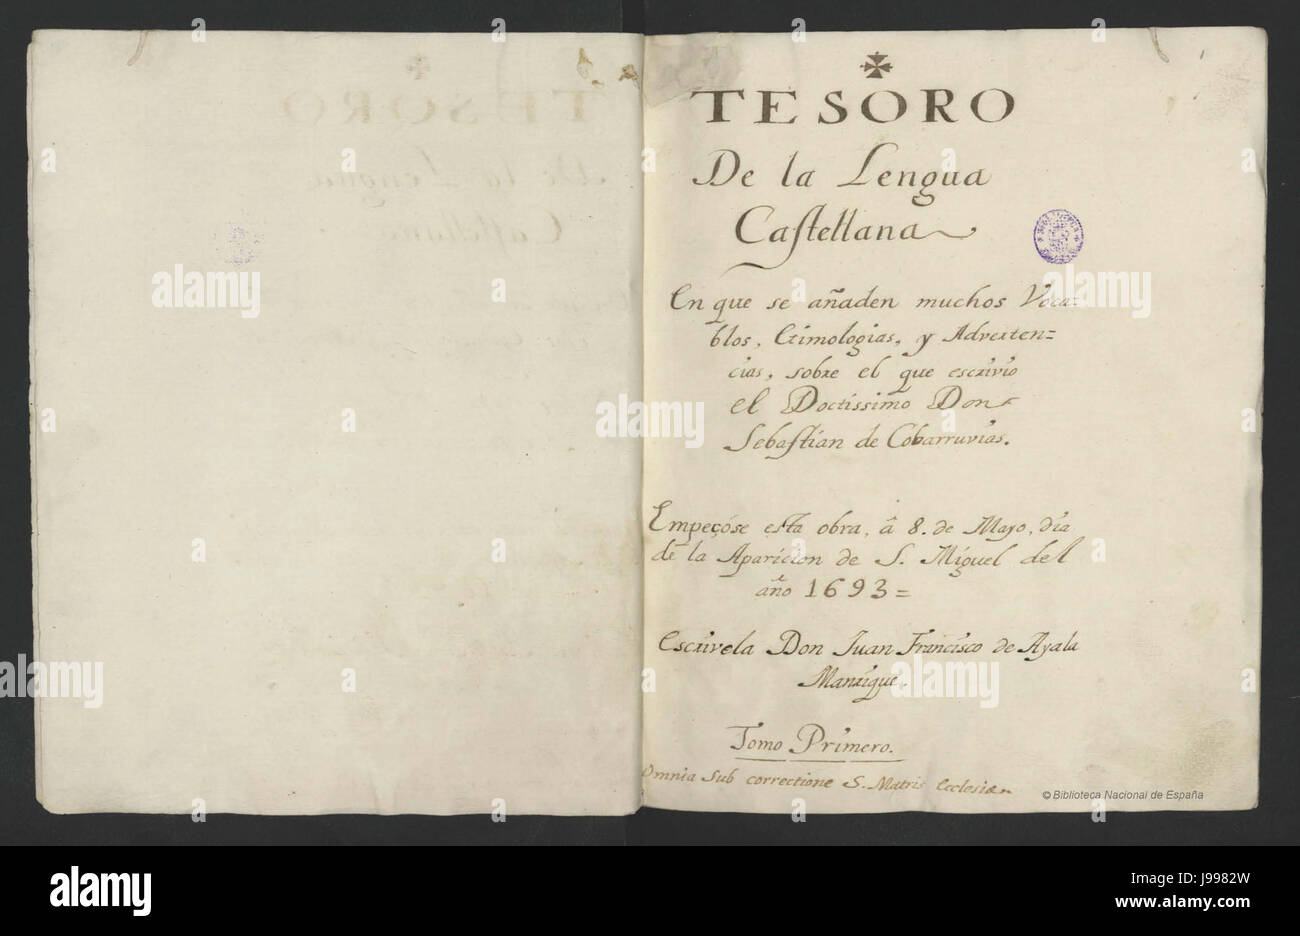 TESORO
De la Lengua
Castellana
En que se añaden muchos Voca=
blos, Etimologias, y Adverten=
cias, sobre el que escrivio
el Doctissimo Don
Sebastian de Cobarruvias.
Empeçóse esta obra, â 8. de Mayo, dia
de la Aparicion de S. Miguel del
año 1693=
Escrivela Don Juan Francisco de Ayala
Manrique.
Tomo Primero.
Omnia sub correctione S. Matris Ecclesiæ
© Biblioteca Nacional de España
alamy
alamy stock photo
J9982W
www.alamy.com